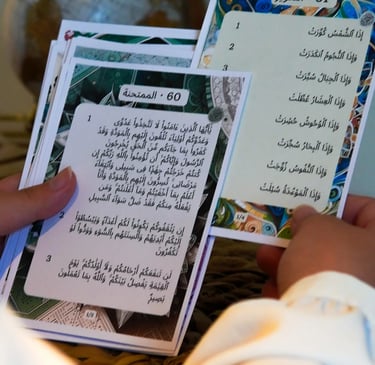 60 · الممتحنة
1
يَٰٓأَيُّهَا ٱلَّذِينَ ءَامَنُوا۟ لَا تَتَّخِذُوا۟ عَدُوِّى
وَعَدُوَّكُمْ أَوْلِيَآءَ تُلْقُونَ إِلَيْهِم بِٱلْمَوَدَّةِ وَقَدْ
كَفَرُوا۟ بِمَا جَآءَكُم مِّنَ ٱلْحَقِّ يُخْرِجُونَ
ٱلرَّسُولَ وَإِيَّاكُمْ ۙ أَن تُؤْمِنُوا۟ بِٱللَّهِ رَبِّكُمْ إِن
كُنتُمْ خَرَجْتُمْ جِهَٰدًا فِى سَبِيلِى وَٱبْتِغَآءَ
مَرْضَاتِى ۚ تُسِرُّونَ إِلَيْهِم بِٱلْمَوَدَّةِ وَأَنَا۠
أَعْلَمُ بِمَآ أَخْفَيْتُمْ وَمَآ أَعْلَنتُمْ ۚ وَمَن
يَفْعَلْهُ مِنكُمْ فَقَدْ ضَلَّ سَوَآءَ ٱلسَّبِيلِ
2
إِن يَثْقَفُوكُمْ يَكُونُوا۟ لَكُمْ أَعْدَآءً وَيَبْسُطُوٓا۟
إِلَيْكُمْ أَيْدِيَهُمْ وَأَلْسِنَتَهُم بِٱلسُّوٓءِ وَوَدُّوا۟ لَوْ
تَكْفُرُونَ
3
لَن تَنفَعَكُمْ أَرْحَامُكُمْ وَلَآ أَوْلَٰدُكُمْ ۚ يَوْمَ
ٱلْقِيَٰمَةِ يَفْصِلُ بَيْنَكُمْ ۚ وَٱللَّهُ بِمَا تَعْمَلُونَ
بَصِيرٌ
81 · التكوير
1
إِذَا ٱلشَّمْسُ كُوِّرَتْ
2
وَإِذَا ٱلنُّجُومُ ٱنكَدَرَتْ
3
وَإِذَا ٱلْجِبَالُ سُيِّرَتْ
وَإِذَا ٱلْعِشَارُ عُطِّلَتْ
وَإِذَا ٱلْوُحُوشُ حُشِرَتْ
وَإِذَا ٱلْبِحَارُ سُجِّرَتْ
وَإِذَا ٱلنُّفُوسُ زُوِّجَتْ
وَإِذَا ٱلْمَوْءُۥدَةُ سُئِلَتْ
1/4